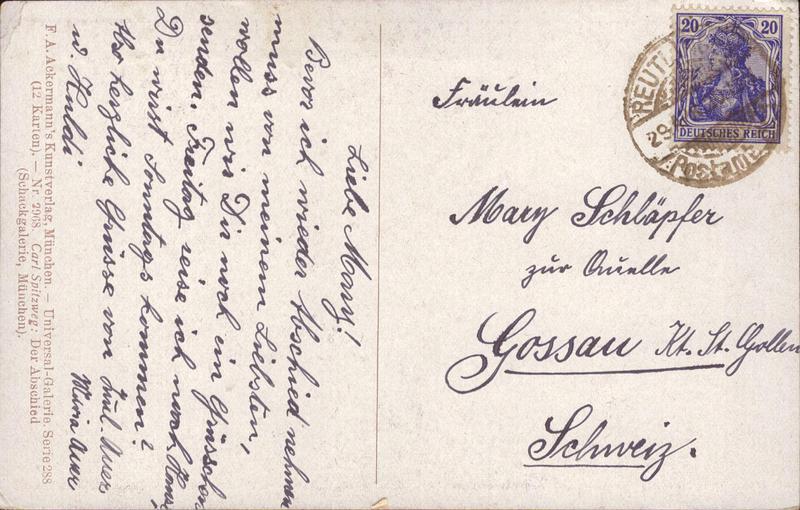 Liebe Mary!
Bevor ich wieder Abschied nehmen
muss von meinem Liebsten,
wollen wir Dir noch ein Grüsschen
senden. Freitag reise ich nach
Du wirst Sonntags kommen?
Also herzliche Grüsse von
u. Huldi Maria
F. A. Ackermann's Kunstverlag, München. — Universal-Galerie. Serie 288
(12 Karten). — Nr. 2968. Carl Spitzweg: Der Abschied
(Schackgalerie, München).
20 20
DEUTSCHES REICH
REUTL
29
Postamt
Fräulein
Mary Schläpfer
zur Quelle
Gossau Kt. St. Gallen
Schweiz.